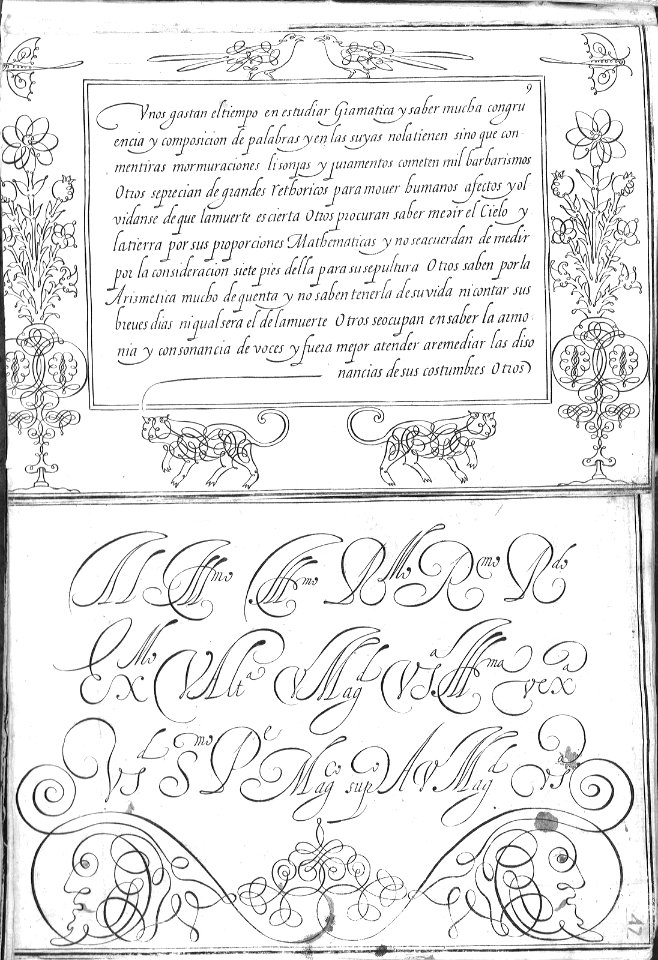 9
Vnos gastan el tiempo en estudiar Gramatica y saber mucha congru
encia y composicion de palabras y en las suyas nola tienen sino que con-
mentiras mormuraciones lisonjas y juramentos cometen mil barbarismos
Otros se precian de grandes rethoricos para mouer humanos afectos y ol
vidanse de que la muerte es cierta Otros procuran saber medir el Cielo y
la tierra por sus proporciones Mathematicas y no se acuerdan de medir
por la consideracion siete pies della para su sepultura Otros saben por la
Arismetica mucho de quenta y no saben tenerla de su vida ni contar sus
breues dias ni qual sera el de la muerte Otros se ocupan en saber la armo-
nia y consonancia de voces y fuera mejor atender a remediar las diso
nancias de sus costumbres Otros
Rmo Rdo
Exmo VAlta VMagd
Vexa
Vsd Smo Pe Magco supco AVMagd
17